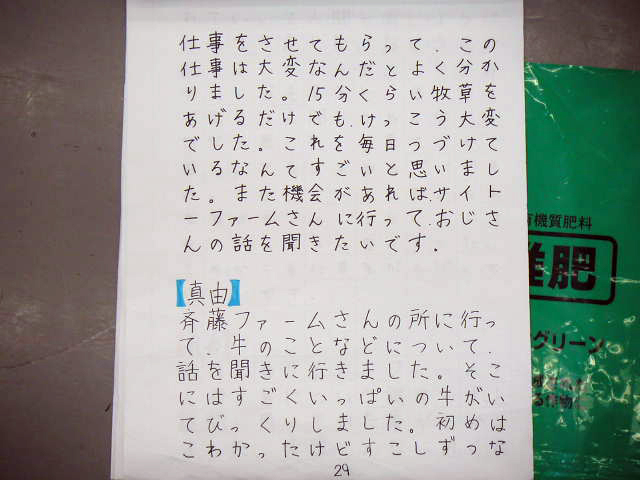 仕事をさせてもらって、この
仕事は大変なんだとよく分か
りました。15分くらい牧草を
あげるだけでも、けっこう大変
でした。これを毎日つづけて
いるなんてすごいと思いまし
た。また機会があれば、サイト
ーファームさんに行って、おじさ
んの話を聞きたいです。
【真由】
斉藤ファームさんの所に行っ
て、牛のことなどについて、
話を聞きに行きました。そこ
にはすごくいっぱいの牛がい
てびっくりしました。初めは
こわかったけどすこしずつな
29
有機質肥料
堆肥
グリーン